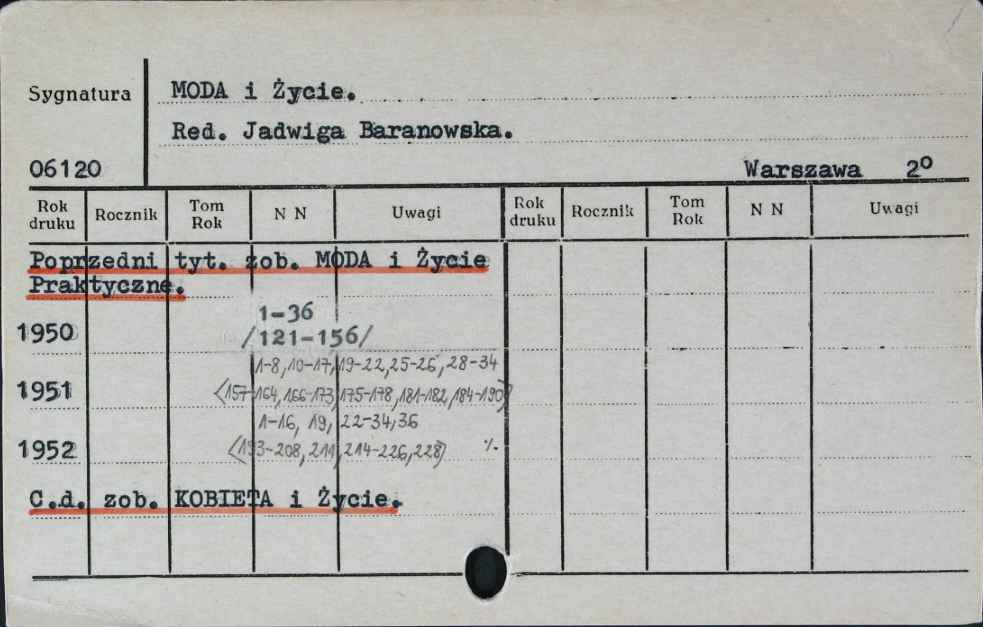 Sygnatura
MODA i Życie.
Red. Jadwiga Baranowska.
06120
Warszawa 2º
Rok druku Rocznik Tom Rok N N Uwagi Rok druku Rocznik Tom Rok N N Uwagi
Poprzedni tyt. zob. MODA i Życie
Praktyczne.
1-36
1950 /121-156/
1-8, 10-17, 19-22, 25-26, 28-34
1951 <157-164, 166-173, 175-178, 181-182, 184-190>
1-16, 19, 22-34, 36
1952 <193-208, 211, 214-226, 228> ·/.
C.d. zob. KOBIETA i Życie.